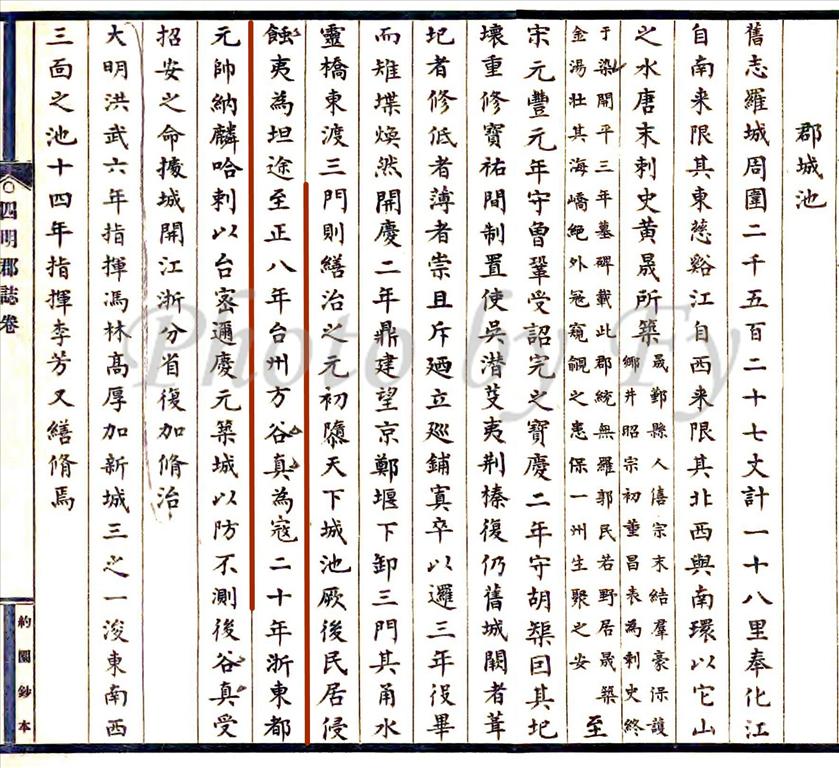 郡城池
舊志羅城周圍二千五百二十七丈計一十八里奉化江
自南来限其東慈谿江自西来限其北西與南環以它山
之水唐末刺史黄晟所築晟鄞縣人僖宗末結羣豪保護
鄉井昭宗初董昌表為刺史終
于梁開平三年墓碑載此郡統無羅郭民若野居晟築
金湯壯其海嶠絕外冦窺覦之患保一州生聚之安
至
宋元豐元年守曾鞏受詔完之寶慶二年守胡榘因其圮
壞重修寶祐間制置使吳潜芟夷荆榛復仍舊城闕者葺
圮者修低者薄者崇且斥廼立廵鋪寘卒以邏三年役畢
而雉堞煥然開慶二年鼎建望京鄭堰下卸三門其甬水
靈橋東渡三門則繕治之元初隳天下城池厥後民居侵
蝕夷為坦途至正八年台州方谷真為寇二十年浙東都
元帥納麟哈剌以台宻邇慶元築城以防不測後谷真受
招安之命擾城開江浙分省復加脩治
大明洪武六年指揮馮林高厚加新城三之一浚東南西
三面之池十四年指揮李芳又繕脩焉
四明郡誌卷
約園鈔本
Photo by Fy